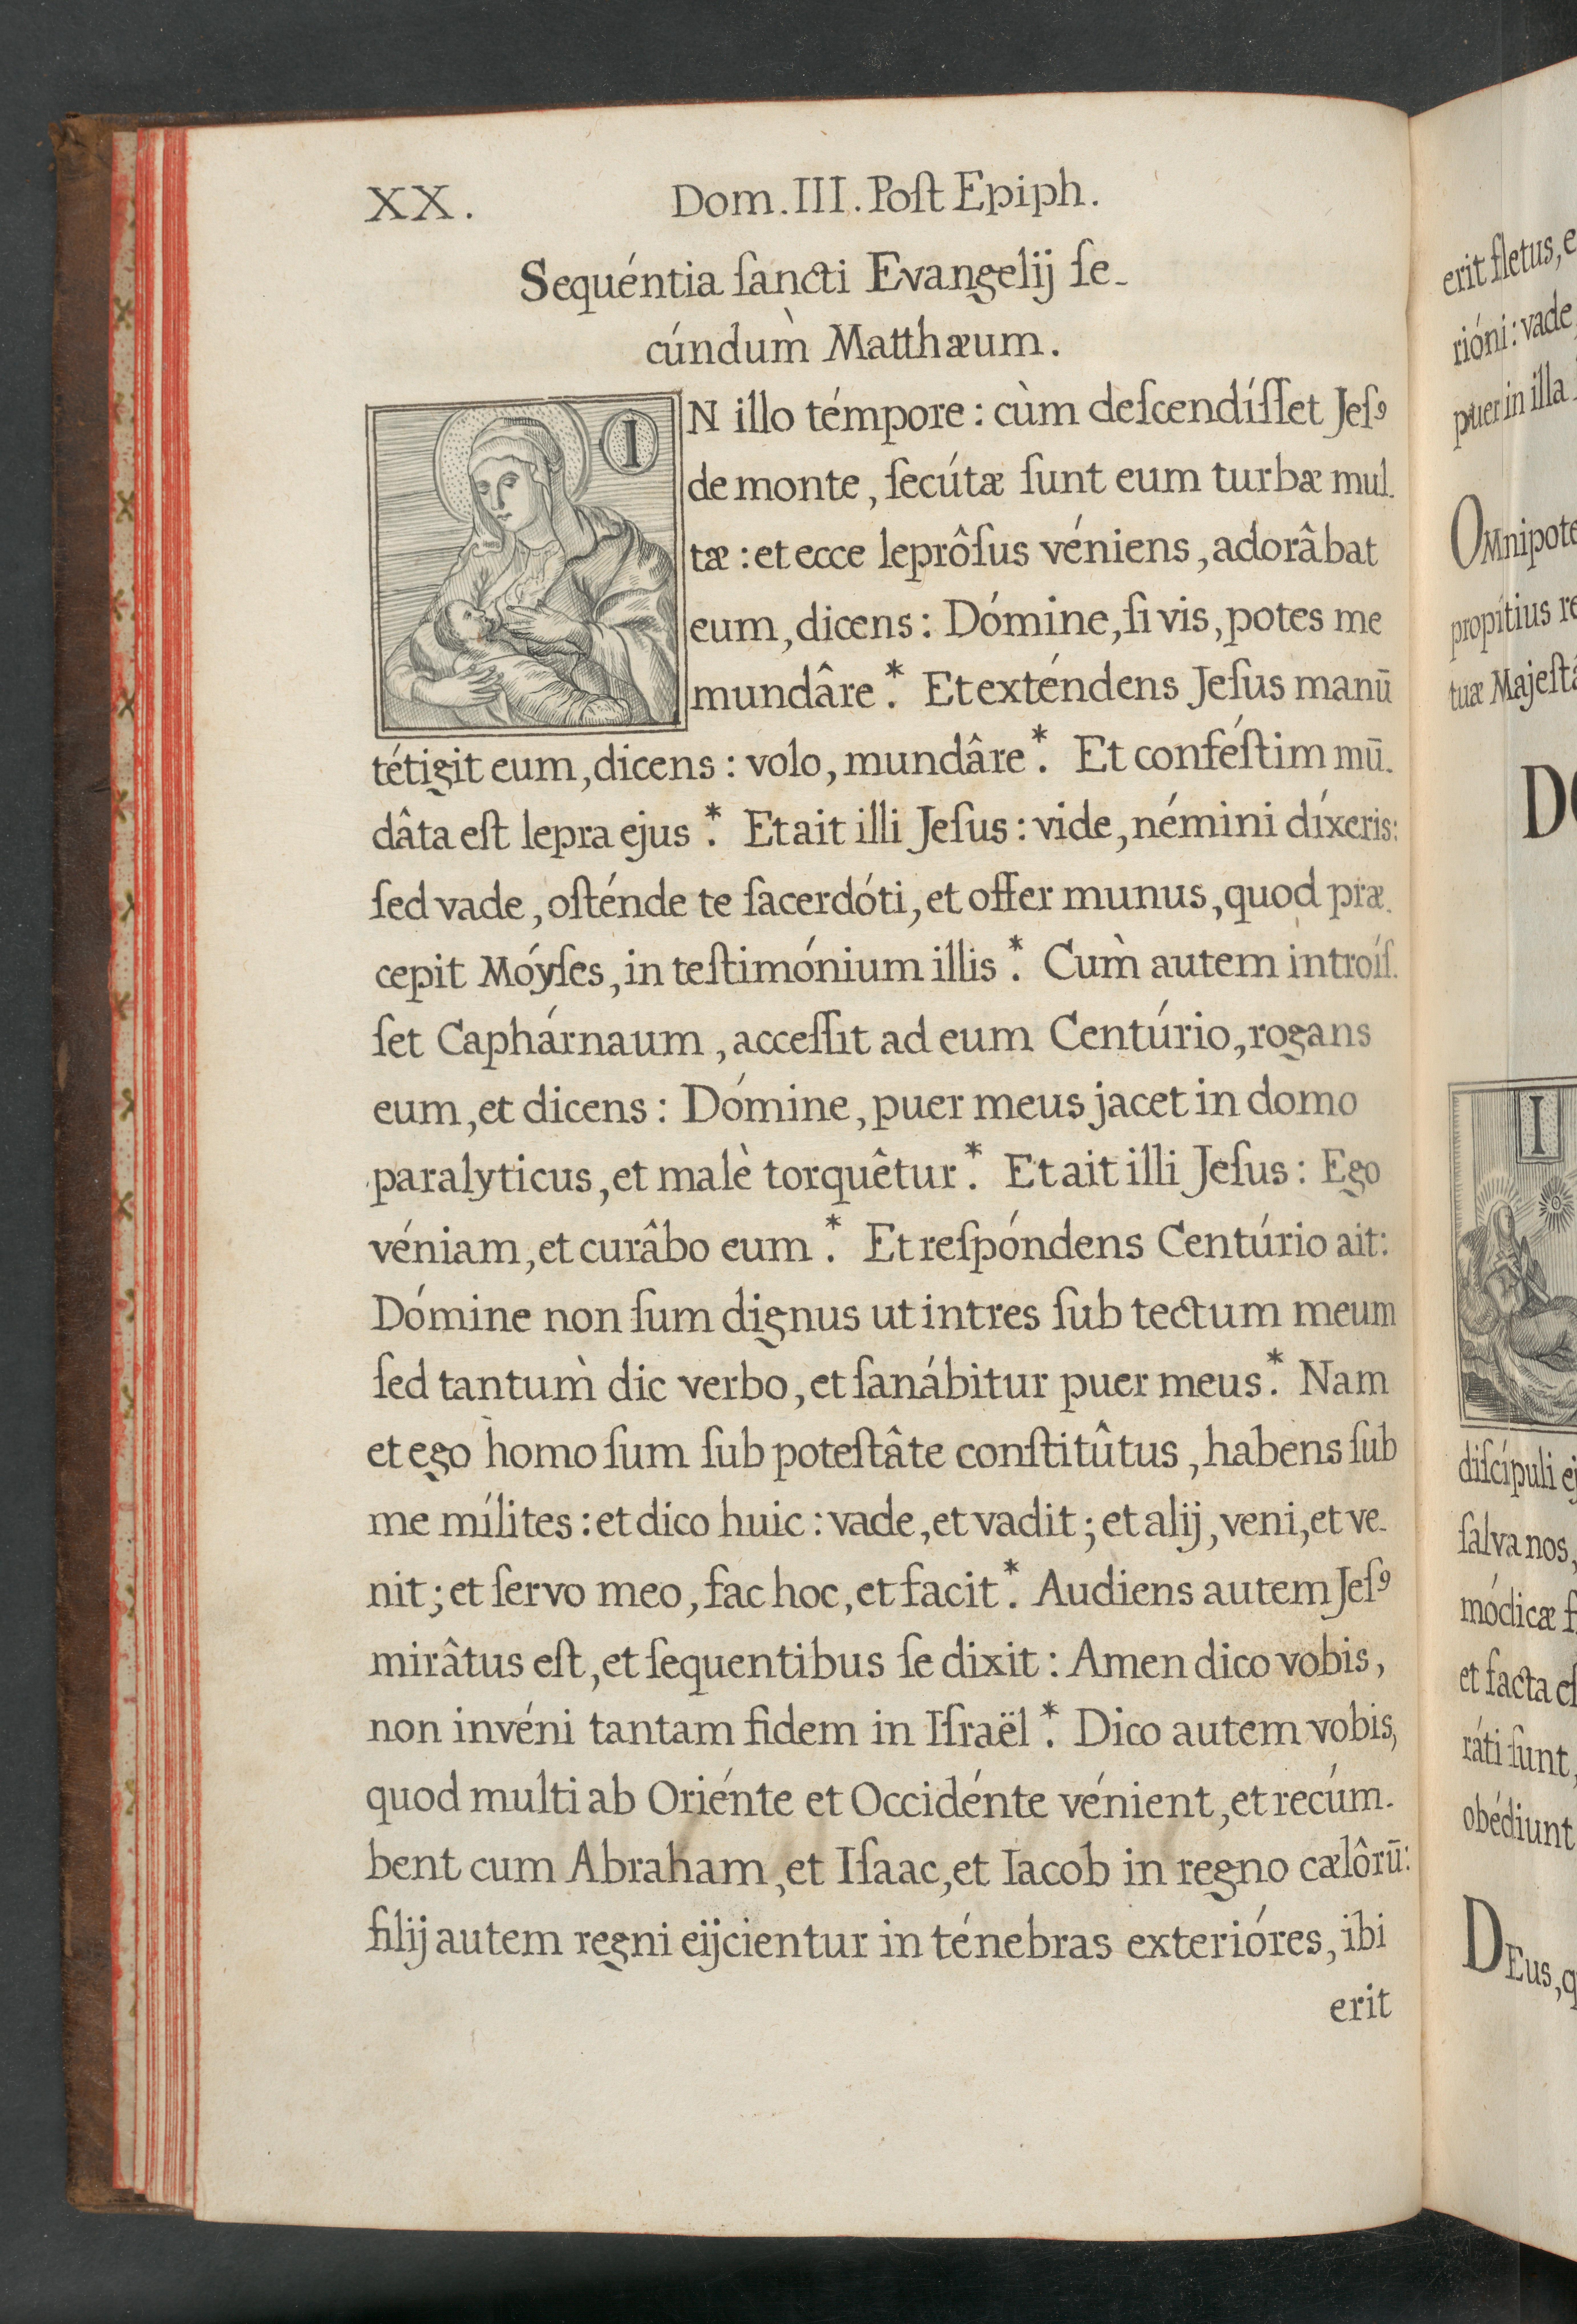 XX.
Dom. III. Poſt Epiph.
Sequéntia ſancti Evangelij ſe-
cúndum̀ Matthæum.
I
N illo témpore : cùm deſcendíſſet Jeſꝰ
de monte, ſecútæ ſunt eum turbæ mul-
tæ : et ecce leprôſus véniens, adorâbat
eum, dicens : Dómine, ſi vis, potes me
mundâre .* Et exténdens Jeſus manū
tétigit eum, dicens : volo, mundâre .* Et conféſtim mū-
dâta eſt lepra ejus .* Et ait illi Jeſus : vide, némini díxeris:
ſed vade, oſténde te ſacerdóti, et offer munus, quod præ-
cepit Móyſes, in teſtimónium illis .* Cum̀ autem introíſ-
ſet Caphárnaum, acceſſit ad eum Centúrio, rogans
eum, et dicens : Dómine, puer meus jacet in domo
paralyticus, et malè torquêtur .* Et ait illi Jeſus : Ego
véniam, et curâbo eum .* Et reſpóndens Centúrio ait:
Dómine non ſum dignus ut intres ſub tectum meum
ſed tantum̀ dic verbo, et ſanábitur puer meus .* Nam
et ego homo ſum ſub poteſtâte conſtitûtus, habens ſub
me mílites : et dico huic : vade, et vadit ; et alij, veni, et ve-
nit ; et ſervo meo, fac hoc, et facit .* Audiens autem Jeſꝰ
mirâtus eſt, et ſequentibus ſe dixit : Amen dico vobis,
non invéni tantam fidem in Iſraël .* Dico autem vobis,
quod multi ab Oriénte et Occidénte vénient, et recúm-
bent cum Abraham, et Iſaac, et Iacob in regno cælôrū:
filij autem regni eijcientur in ténebras exterióres, ibi
erit
erit fletus, e
rióni : vade
puer in illa
OMnipote
propítius re
tuæ Majeſtá
I
diſcípuli ej
ſalva nos,
módicæ f
et facta eſ
ráti ſunt,
obédiunt
DEus, q